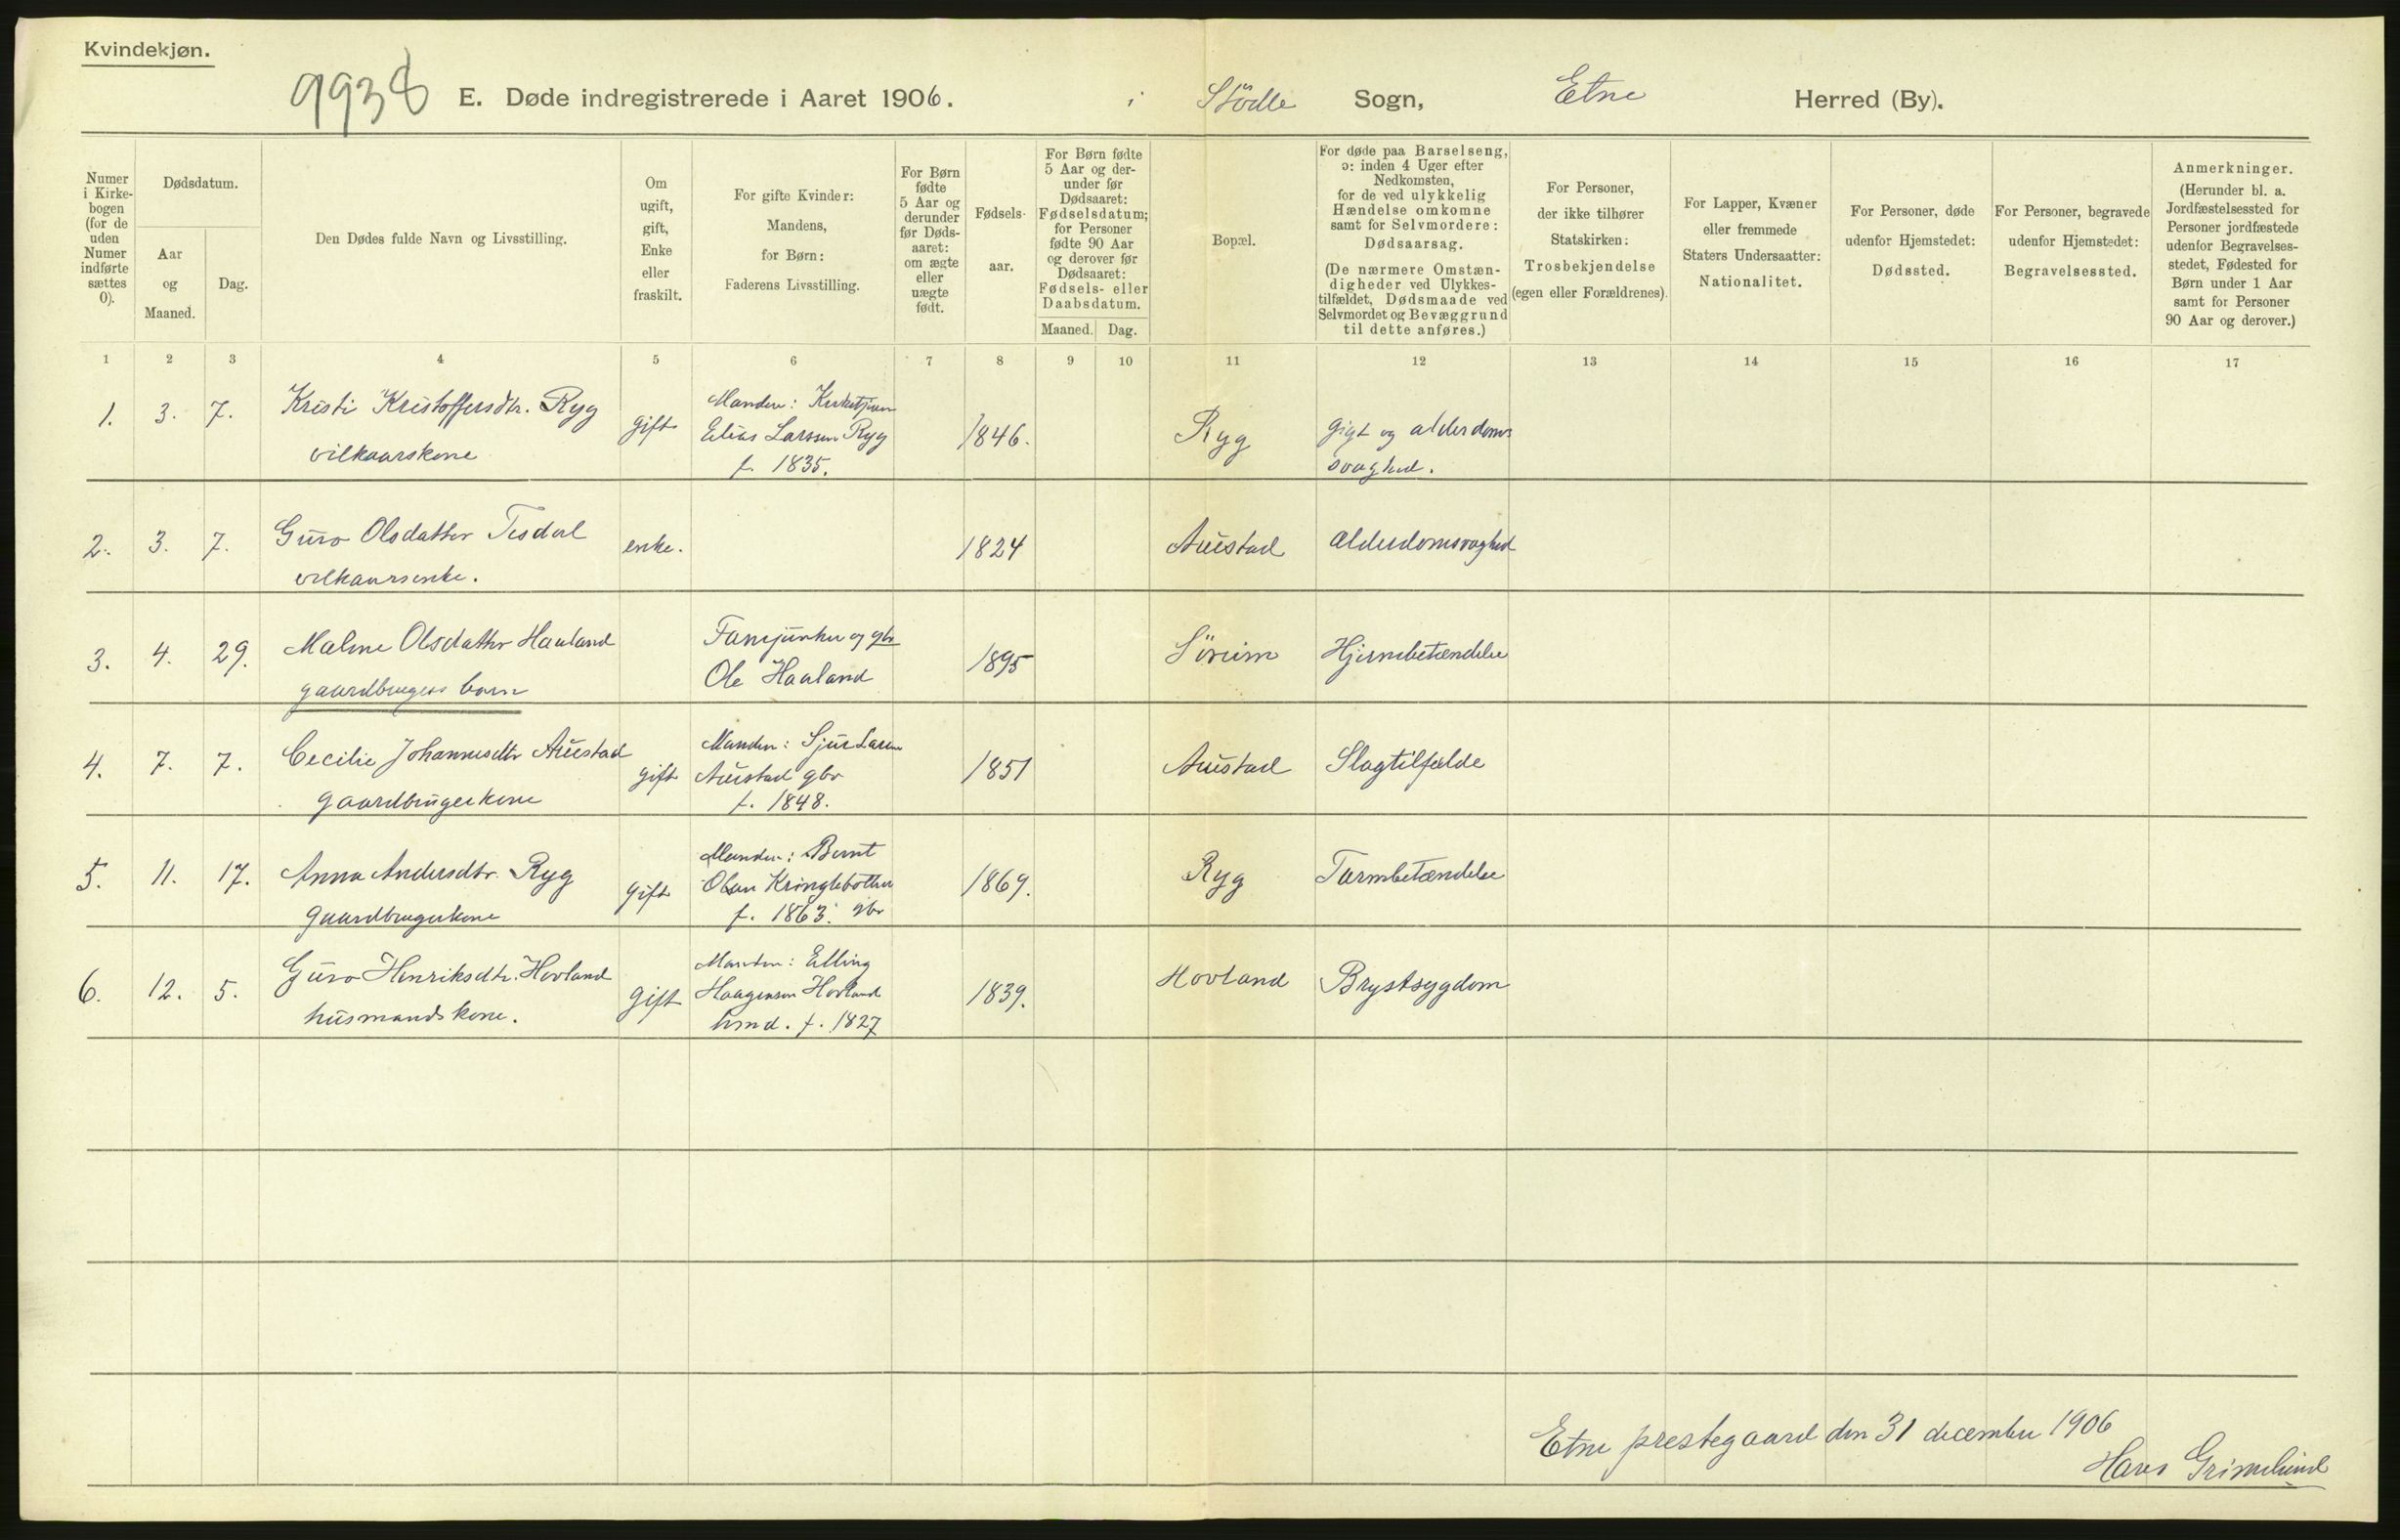 Kvindekjøn.
9938 E. Døde indregistrerede i Aaret 1906. i Stödle Sogn, Etne Herred (By).
Numer i Kirkebogen (for de uden Numer indførte sættes 0).
Dødsdatum.
Aar og Maaned.
Dag.
Den Dødes fulde Navn og Livsstilling.
Om ugift, gift, Enke eller fraskilt.
For gifte Kvinder: Mandens, for Børn: Faderens Livsstilling.
For Børn fødte 5 Aar og derunder før Dødsaaret: om ægte eller uægte født.
Fødselsaar.
For Børn fødte 5 Aar og derunder før Dødsaaret: Fødselsdatum; for Personer fødte 90 Aar og derover før Dødsaaret: Fødsels- eller Daabsdatum.
Maaned. Dag.
Bopæl.
For døde paa Barselseng, ɔ: inden 4 Uger efter Nedkomsten, for de ved ulykkelig Hændelse omkomne samt for Selvmordere: Dødsaarsag.
(De nærmere Omstændigheder ved Ulykkestilfældet, Dødsmaade ved Selvmordet og Bevæggrund til dette anføres.)
For Personer, der ikke tilhører Statskirken: Trosbekjendelse (egen eller Forældrenes).
For Lapper, Kvæner eller fremmede Staters Undersaatter: Nationalitet.
For Personer, døde udenfor Hjemstedet: Dødssted.
For Personer, begravede udenfor Hjemstedet: Begravelsessted.
Anmerkninger.
(Herunder bl. a. Jordfæstelsessted for Personer jordfæstede udenfor Begravelsesstedet, Fødested for Børn under 1 Aar samt for Personer 90 Aar og derover.)
1 2 3 4 5 6 7 8 9 10 11 12 13 14 15 16 17
1. 3. 7. Kristi Kristoffersdtr. Ryg
vilkaarskone
gift
Manden:
Elias Larssen Ryg
f. 1835.
1846.
Ryg
gigt og alderdoms
svaghed.
2. 3. 7. Guro Olsdatter Tesdal
vilkaarsenke.
enke.
1824
Austad
Alderdomsvaghed
3. 4. 29. Malene Olsdatter Haaland
gaardbrugers barn
Fanejunker og gbr
Ole Haaland
1895
Söreim
Hjernebetændelse
4. 7. 7. Cecilie Johannesdtr Austad
gaardbrugerkone
gift
Manden: Sjur Larsen
Austad gbr
f. 1848.
1851
Austad
Slagtilfælde
5. 11. 17. Anna Andersdtr. Ryg
gaardbrugerkone
gift
Manden: Bernt
Olsen Kringlebotten
f. 1863. gbr
1869.
Ryg
Tarmbetændelse
6. 12. 5. Guro Henriksdtr. Hovland
husmandskone.
gift
Manden: Elling
Haagensen Hovland
hmd. f. 1827
1839.
Hovland
Brystsygdom
Etne prestegaard den 31 december 1906
Hans Grimelund